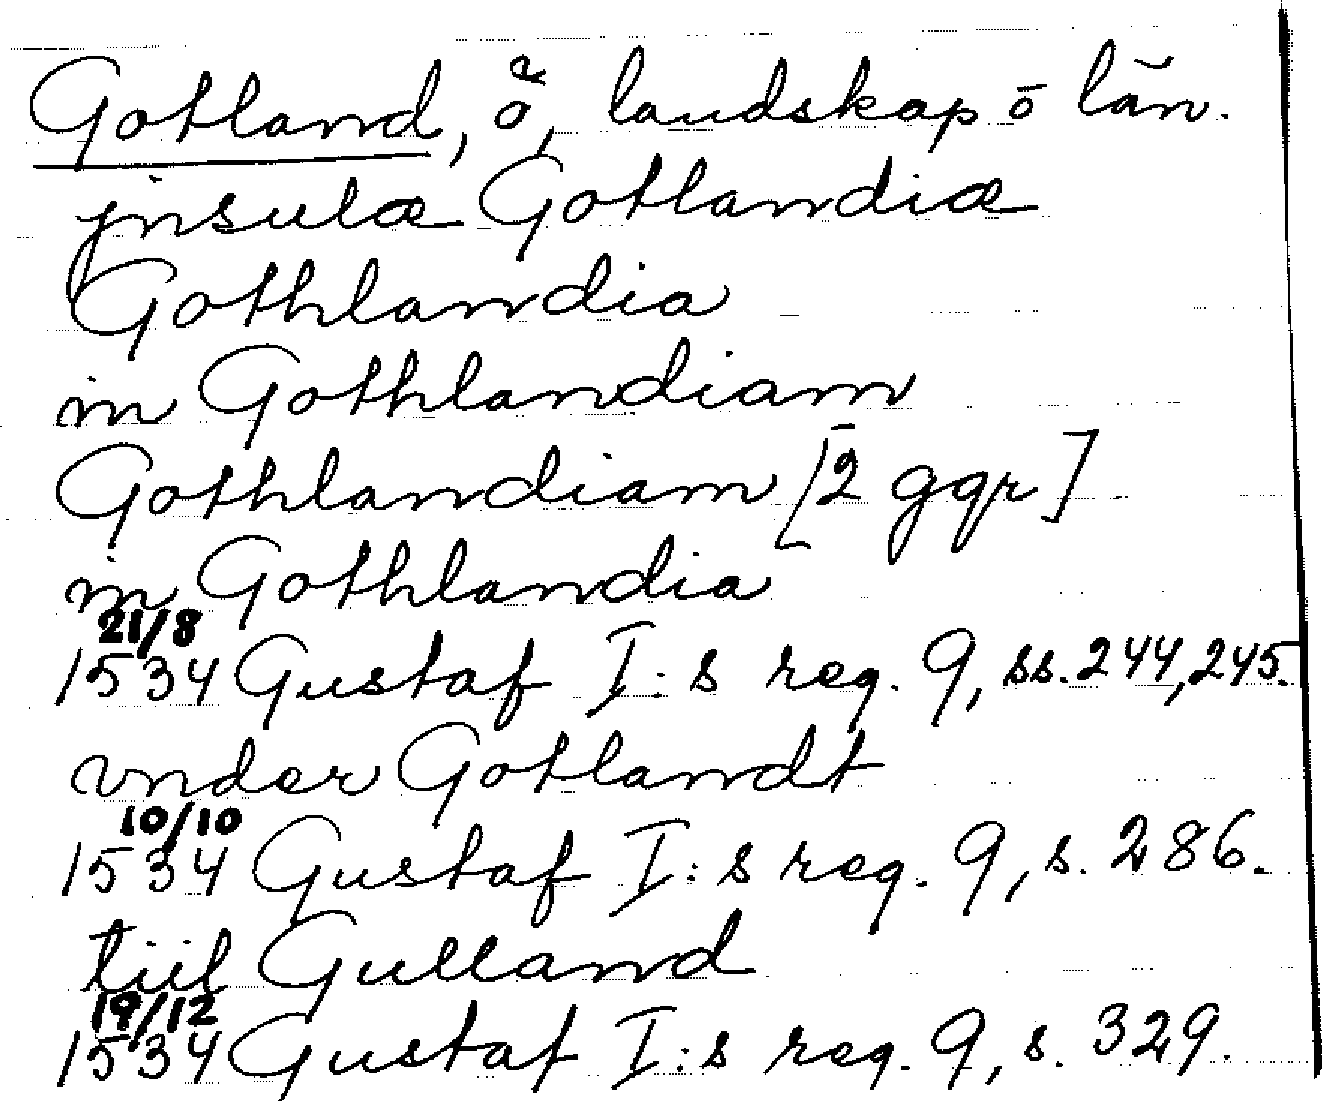 Gotland, ö, landskap o län.
jnsulæ Gotlandiæ
Gothlandia
in Gothlandiam
Gothlandiam [2 ggr]
in Gothlandia
21/8
1534 Gustaf I:s reg. 9, ss. 244, 245.
vnder Gotlandt
10/10
1534 Gustaf I:s reg. 9, s. 286.
tiil Gulland
19/12
1534 Gustaf I:s reg. 9, s. 329.